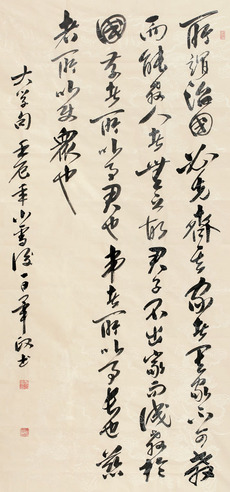 所谓治國必先齊其家者其家不可教
而能教人者無之故君子不出家而成教於
國孝者所以事君也弟者所以事長也慈
者所以使衆也
大学句 壬辰年小雪後一日